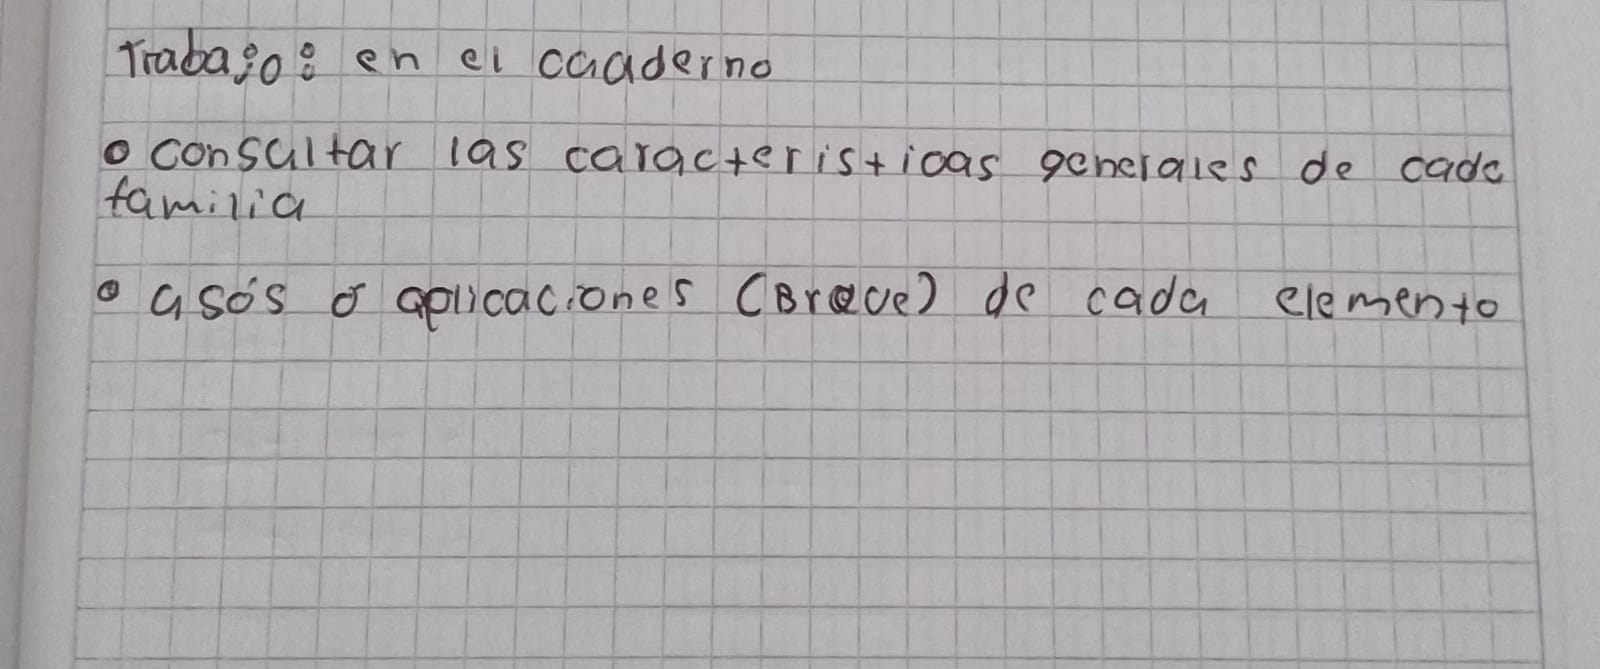 Trabajo: en el cuaderno
o consultar las caracteristicas generales de cada
familia
o usos o aplicaciones (Breve) de cada elemento